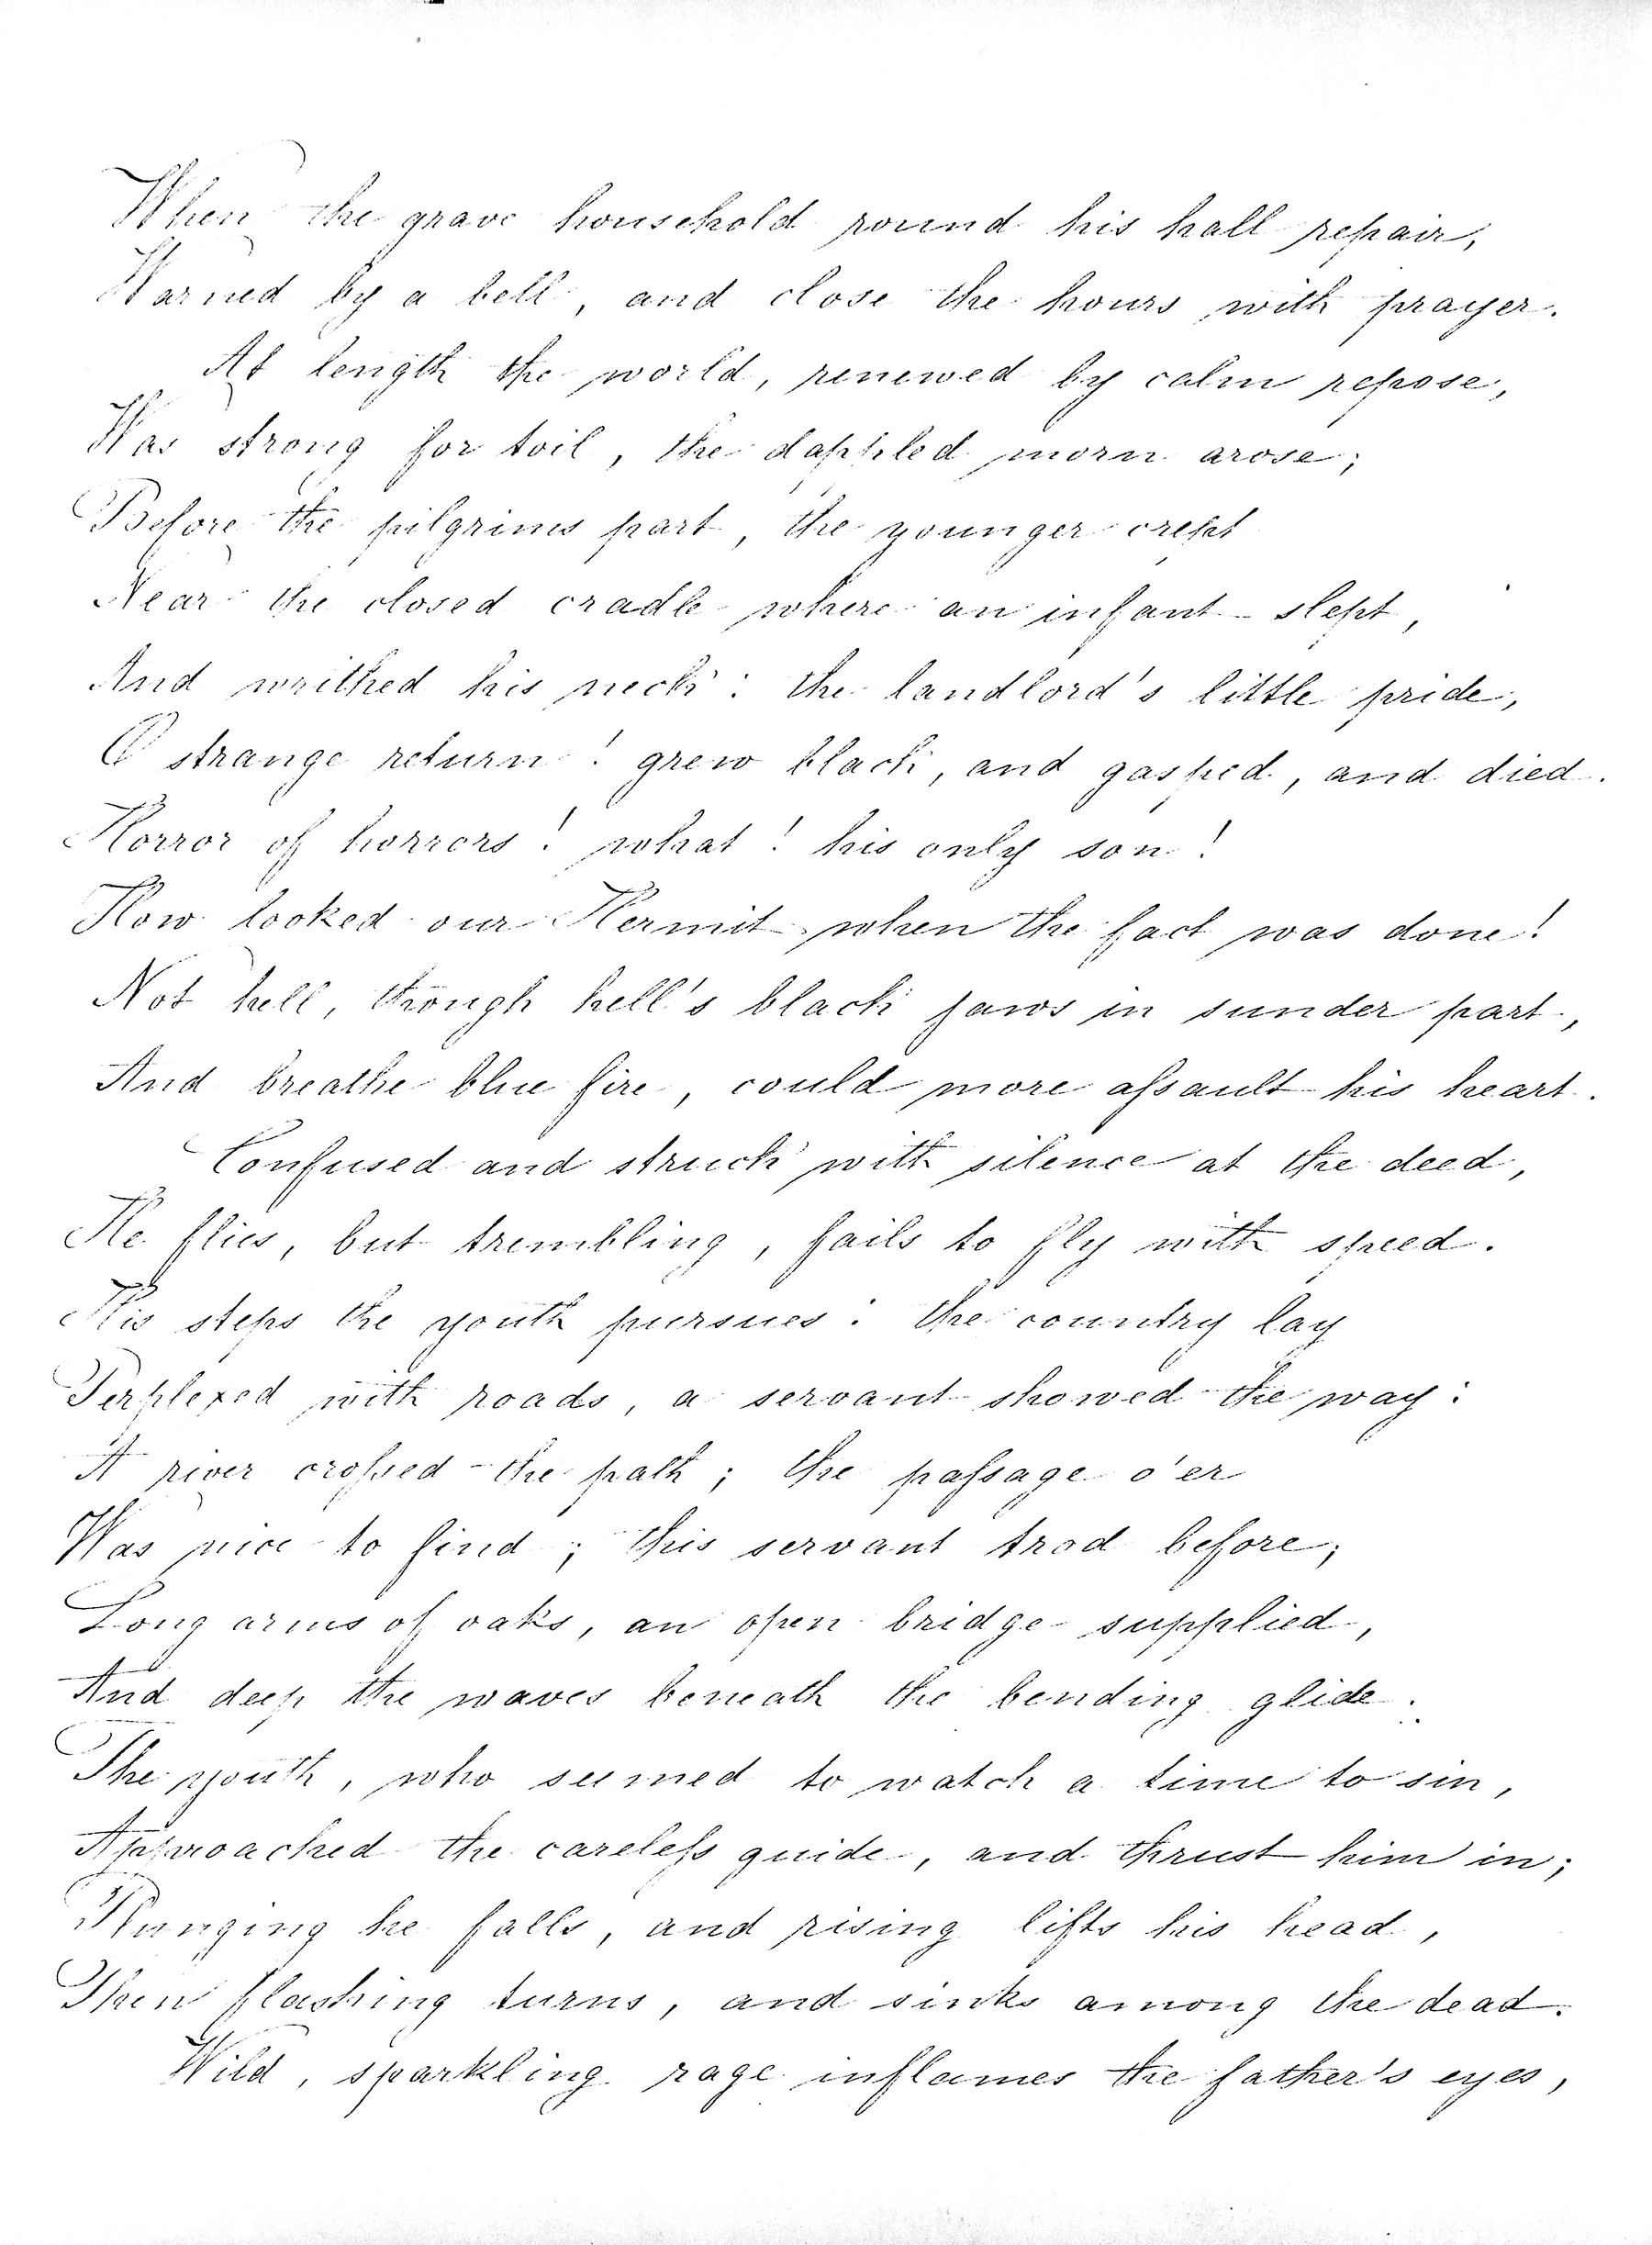 When the grave household round his hall repair,
Warned by a bell, and close the hours with prayer.
At length the world, renewed by calm repose,
Was strong for toil, the dappled morn arose;
Before the pilgrims part, the younger crept
Near the closed cradle where an infant slept,
And writhed his neck: the landlord's little pride,
O strange return! grew black, and gasped, and died.
Horror of horrors! what! his only son!
How looked our Hermit when the fact was done!
Not hell, though hell's black jaws in sunder part,
And breathe blue fire, could more aſsault his heart.
Confused and struck with silence at the deed,
He flies, but trembling, fails to fly with speed.
His steps the youth pursues: the country lay
Perplexed with roads, a servant showed the way:
A river croſsed the path; the paſsage o'er
Was nice to find; this servant trod before;
Long arms of oaks, an open bridge supplied,
And deep the waves beneath the bending glide.
The youth, who seemed to watch a time to sin,
Approached the careleſs guide, and thrust him in;
Plunging he falls, and rising lifts his head,
Then flashing turns, and sinks among the dead.
Wild, sparkling rage inflames the father's eyes,